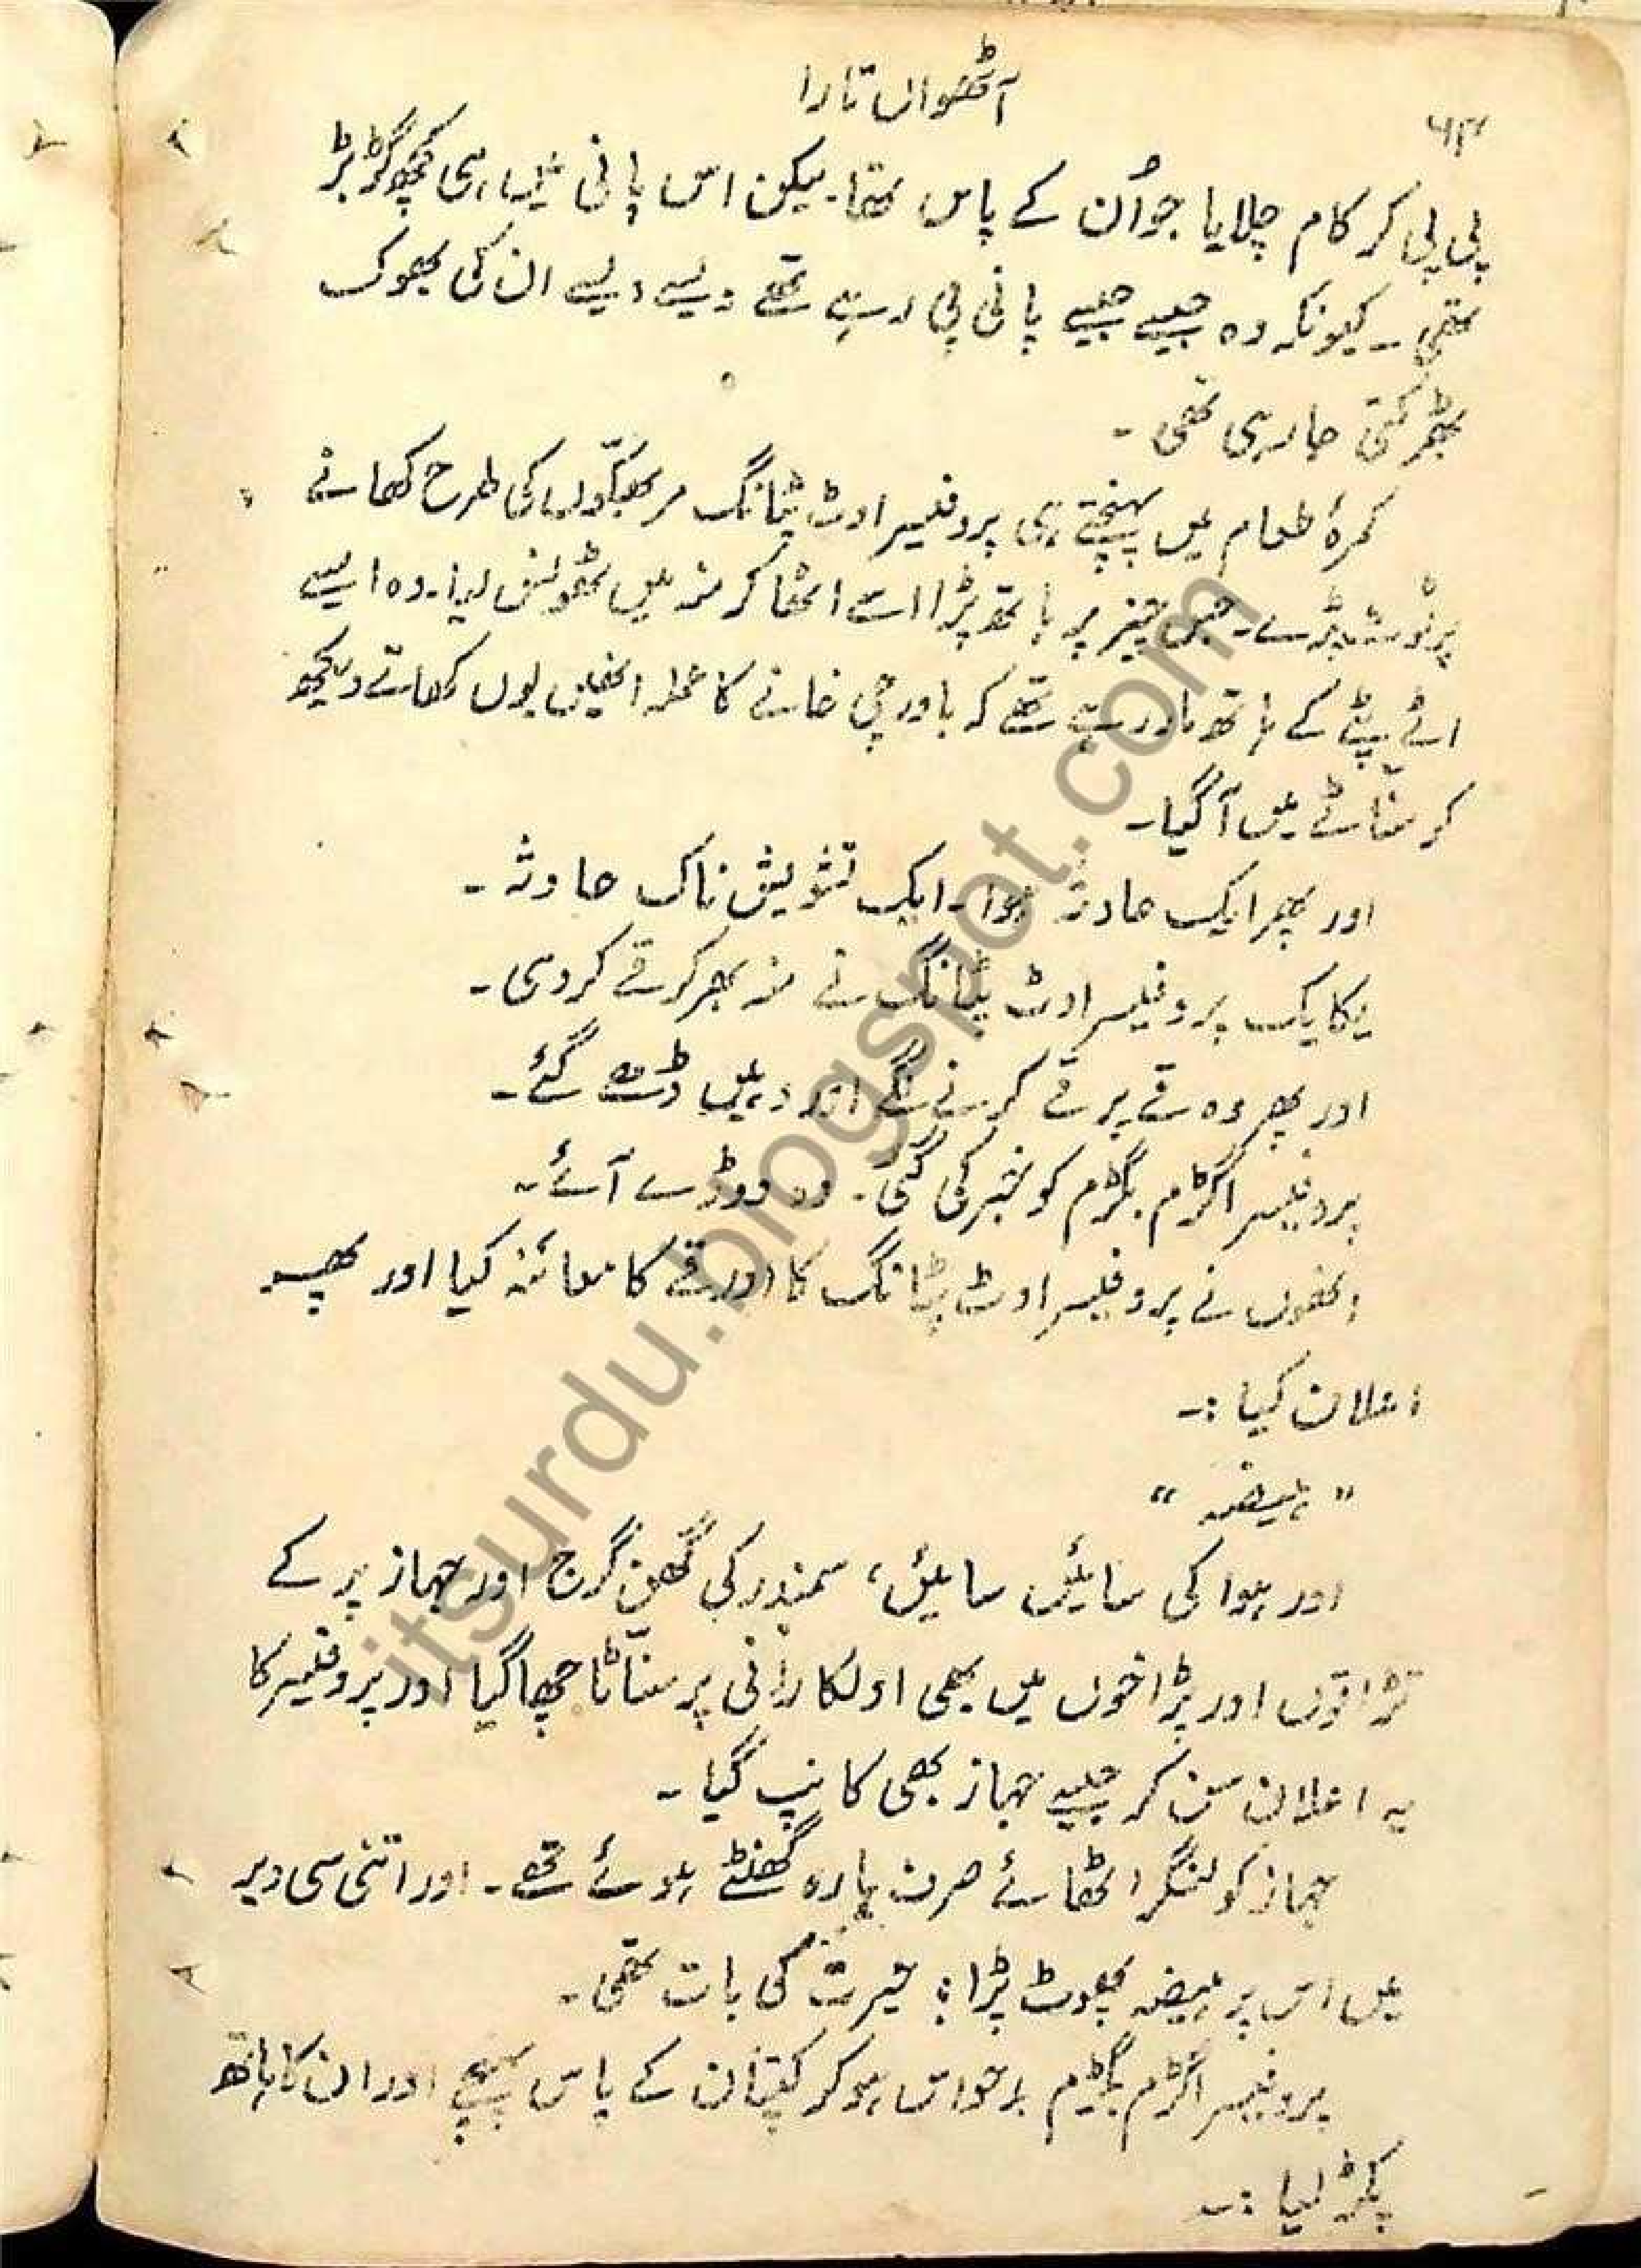 ۶۴
آٹھواں تارا
پی پی کر کام چلایا جو اُن کے پاس تھا۔ لیکن اس پانی میں ہی کچھ گڑبڑ
تھی۔ کیونکہ وہ جیسے جیسے پانی پی رہے تھے ویسے ویسے ان کی بھوک
بھڑکتی جا رہی تھی۔
کمرۂ طعام میں پہنچتے ہی پروفیسر اوٹ پٹانگ مربھکّوں کی طرح کھانے
پر ٹوٹ پڑے۔ جس چیز پر ہاتھ پڑا اسے اٹھا کر منہ میں ٹھونس لیا۔ وہ ایسے
اٹے پٹے کے ہاتھ مار رہے تھے کہ باورچی خانے کا عملہ انھیں یوں کھاتے دیکھ
کر سنّاٹے میں آگیا۔
اور پھر ایک حادثہ ہوا۔ ایک تشویش ناک حادثہ۔
یکایک پروفیسر اوٹ پٹانگ نے منہ بھر کر قے کر دی۔
اور پھر وہ قے پر قے کرنے لگے اور وہیں ڈھے گئے۔
پروفیسر اگڑم بگڑم کو خبر کی گئی۔ وہ دوڑے آئے۔
انھوں نے پروفیسر اوٹ پٹانگ کا اور قے کا معائنہ کیا اور پھر
اعلان کیا :۔
" ہیضہ "
اور ہوا کی سائیں سائیں، سمندر کی گھن گرج اور جہاز پر کے
تڑاقوں اور پڑاخوں میں بھی اولکا رانی پر سنّاٹا چھا گیا اور پروفیسر کا
یہ اعلان سن کر جیسے جہاز بھی کانپ گیا۔
جہاز کو لنگر اٹھائے صرف بارہ گھنٹے ہوئے تھے۔ اور اتنی سی دیر
میں اس پر ہیضہ پھوٹ پڑا؛ حیرت کی بات تھی۔
پروفیسر اگڑم بگڑم بدحواس ہو کر کپتان کے پاس پہنچے اور ان کا ہاتھ
پکڑ لیا :۔
itsurdu.blogspot.com